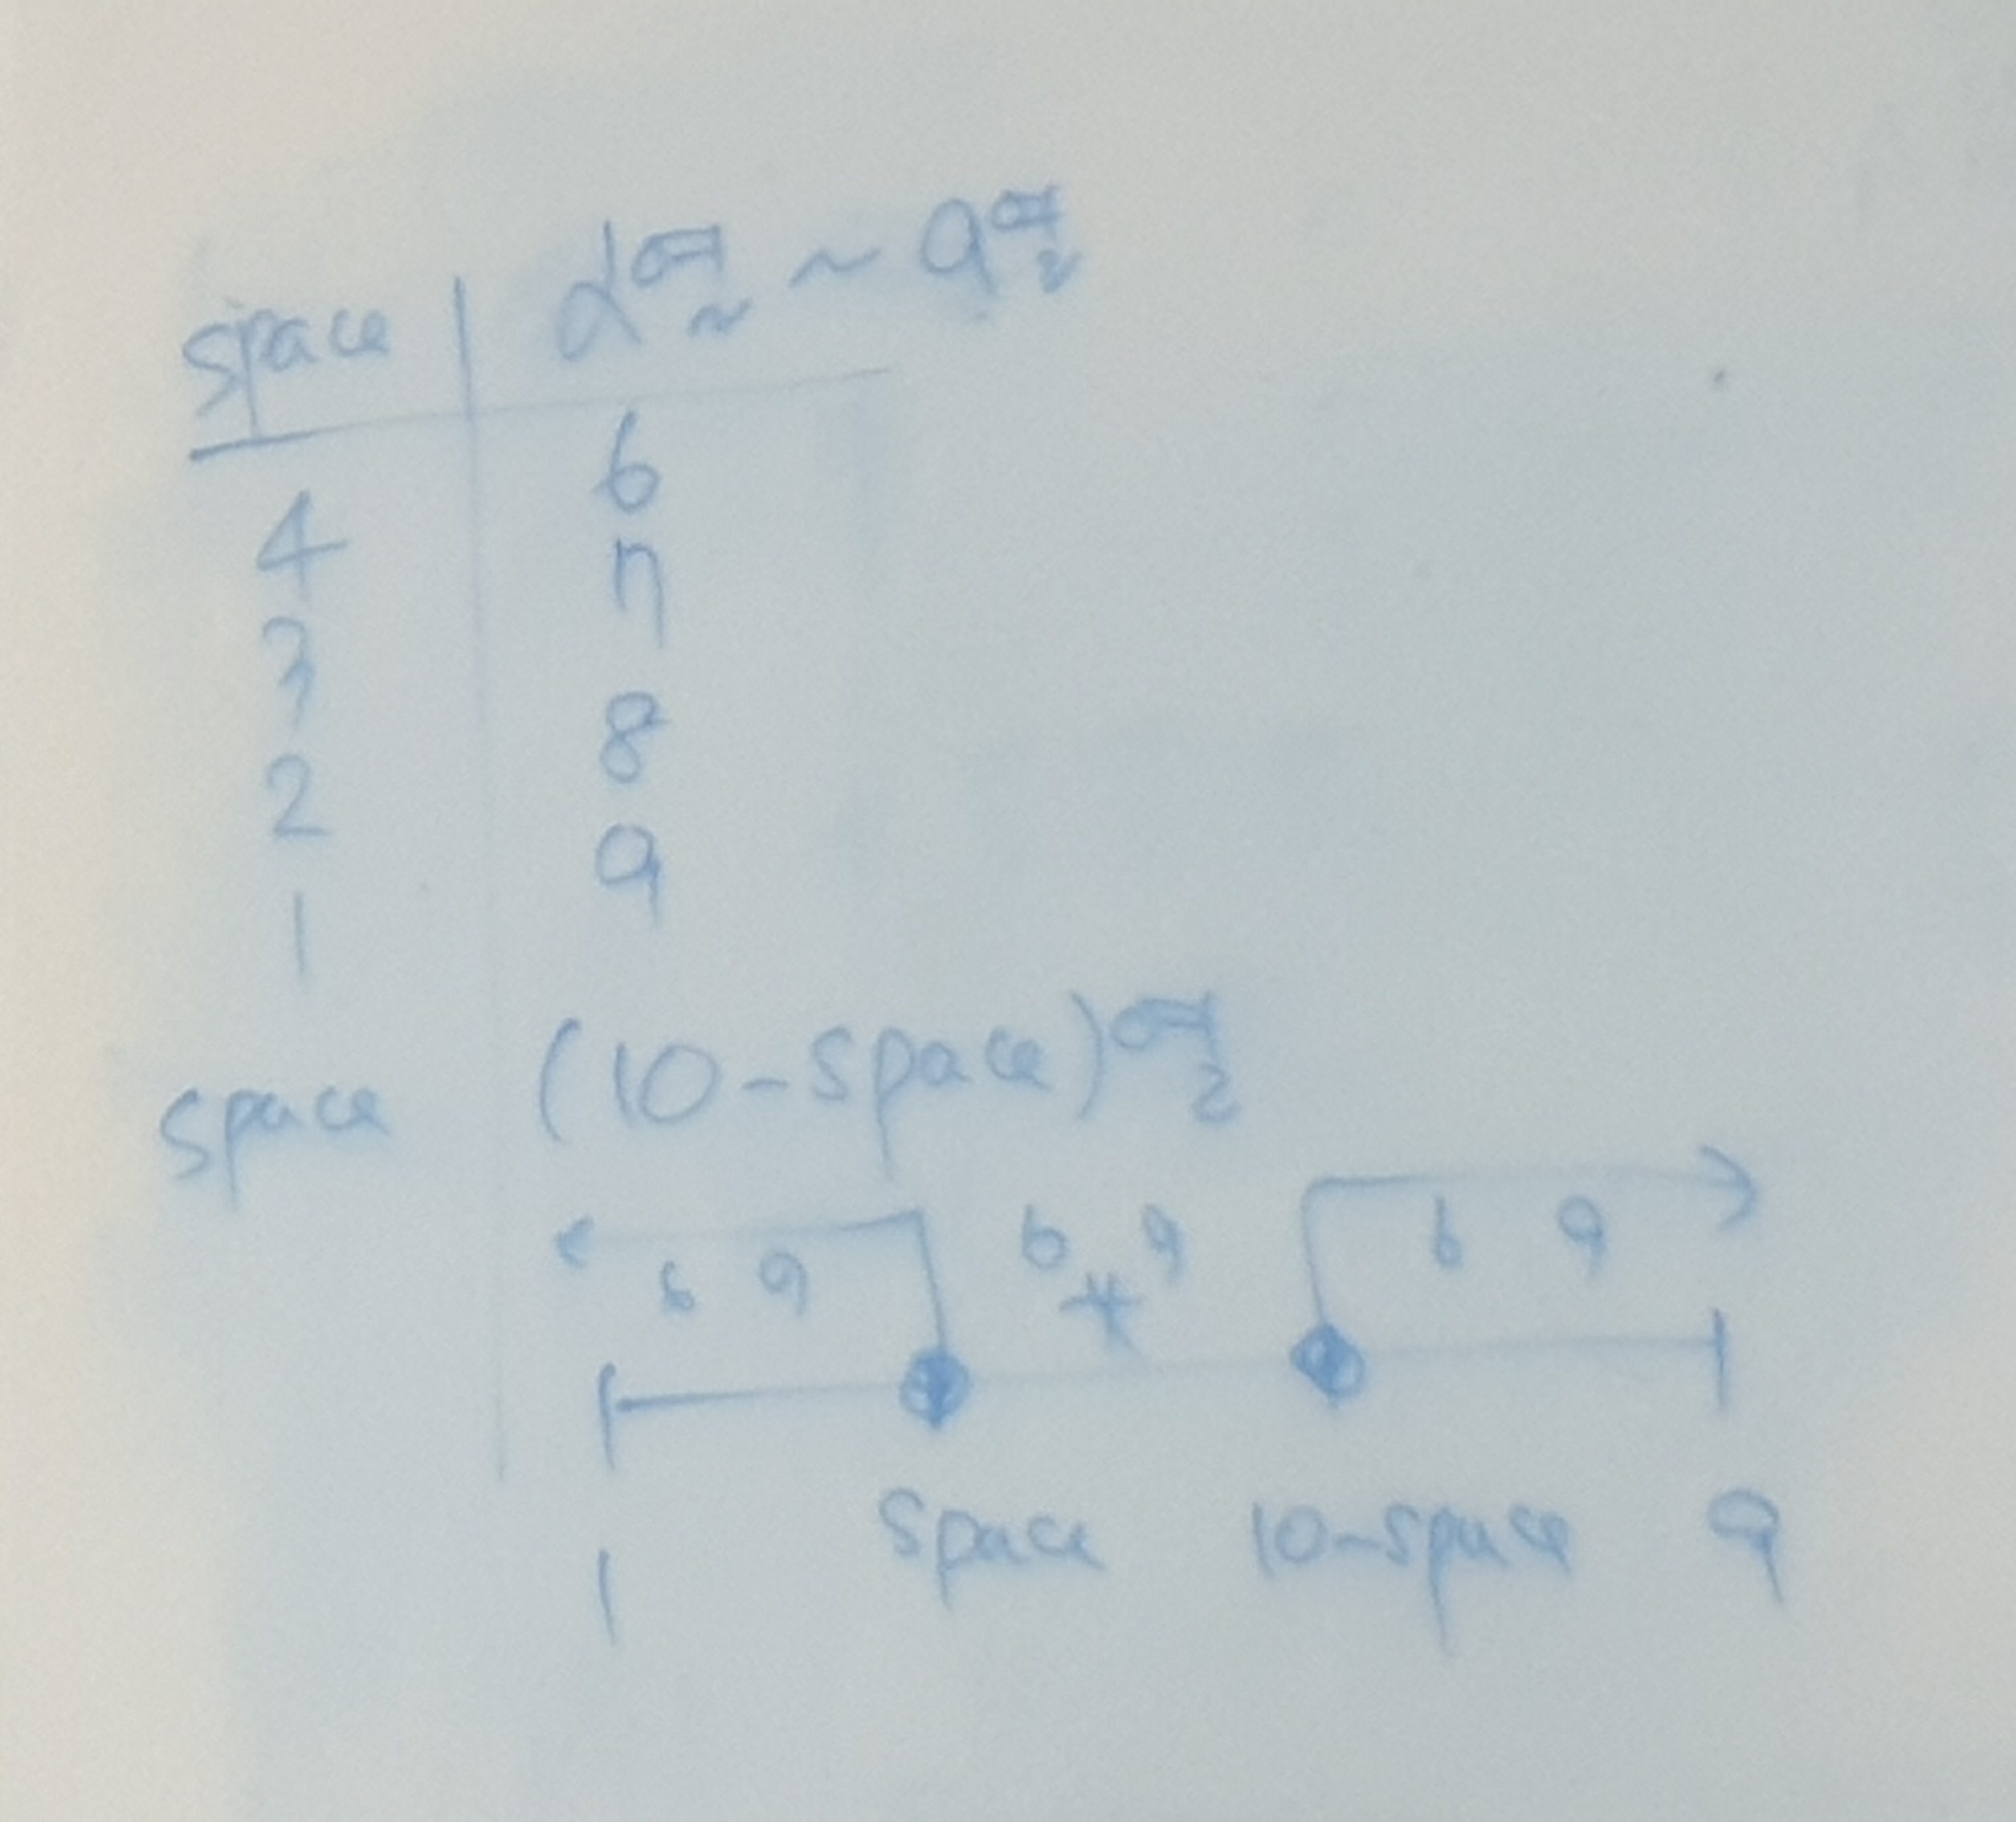 space | α열 ~ 9열
4 6
3 7
2 8
1 9
space (10-space)열
6 9 6 * 9 6 9
1 space 10-space 9